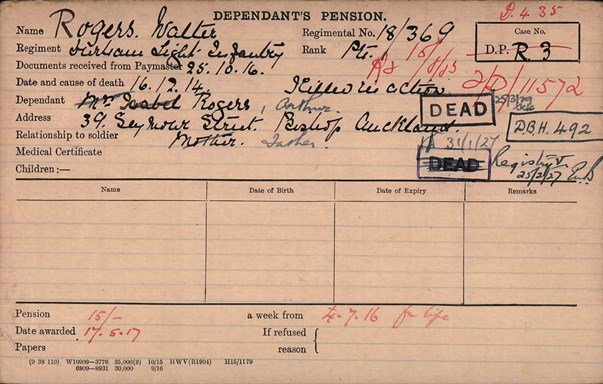 DEPENDANT'S PENSION.
D. 435
Name Rogers. Walter Regimental No. 18/369
Case No.
D.P. R 3
Regiment Durham Light Infantry Rank Pte.
2/D/11572
Documents received from Paymaster 25.10.16.
Date and cause of death 16.12.14. Killed in action
Dependant Mrs Isabel Rogers, Arthur.
DEAD
Address 39 Seymour Street. Bishop Auckland.
D.B.H. 492
Relationship to soldier Mother. Father.
31/1/27
DEAD
Registry
25/2/27
Medical Certificate
Children:—
Name Date of Birth Date of Expiry Remarks
Pension 15/- a week from 4.7.16 for life
Date awarded 17.5.17 If refused {
Papers reason
(9 38 110) W10909—3776 35,000(2) 10/15 HWV(R1904) H15/1179
6809—8931 30,000 9/16